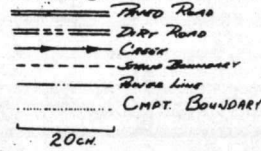 PAVED ROAD
DIRT ROAD
CREEK
STAND BOUNDARY
POWER LINE
CMPT. BOUNDARY
20 CH.